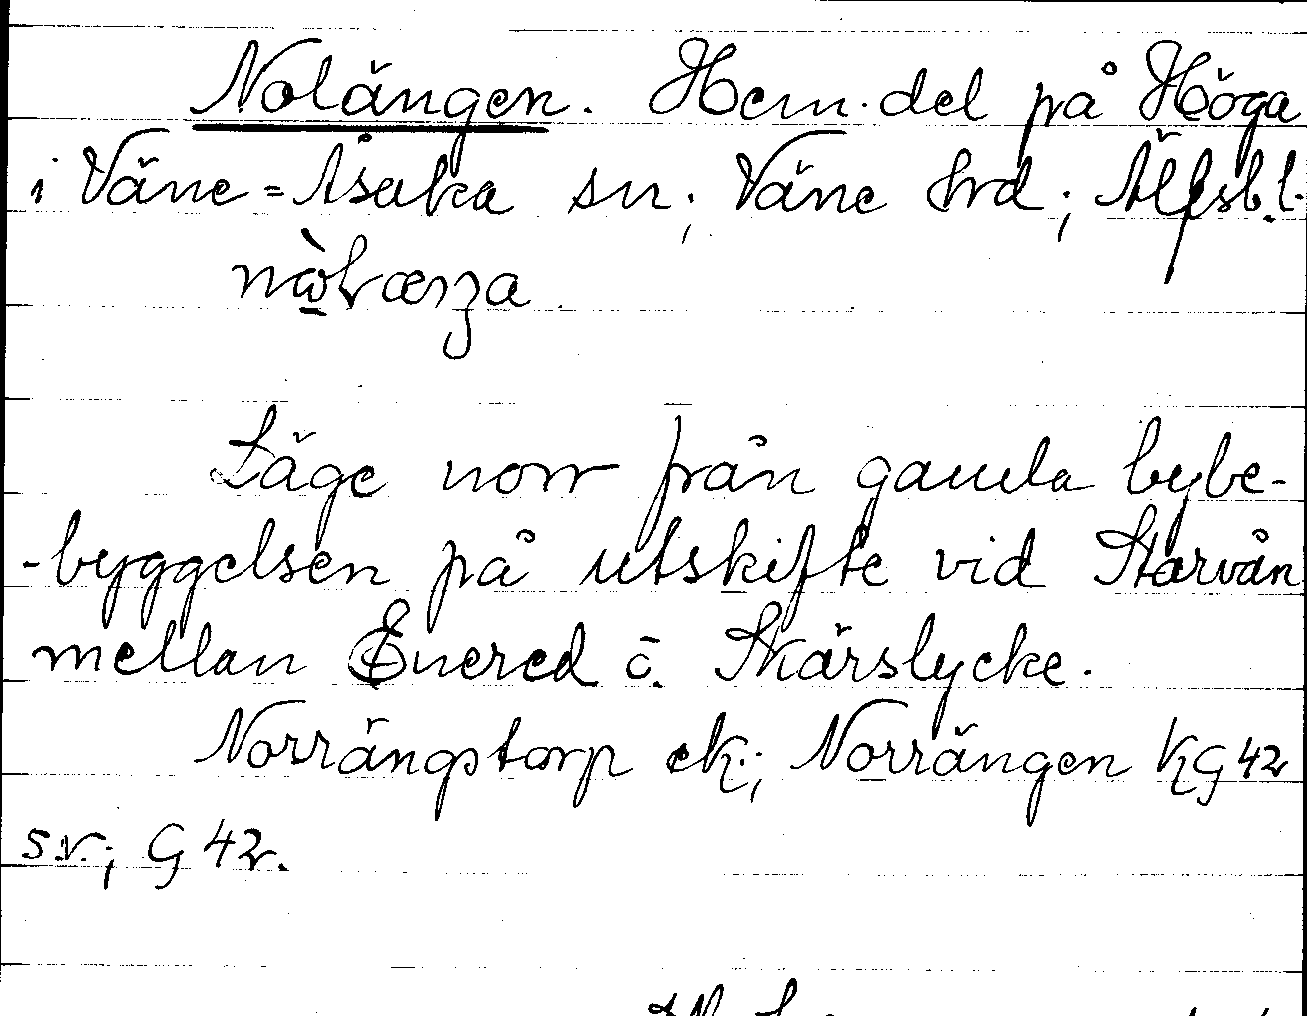 Nolängen. Hem. del på Höga
i Väne=Åsaka sn; Väne hrd; Älfsb.l.
Läge norr från gamla bybe-
-byggelsen på utskifte vid Starvån
mellan Enered o. Skärslycke.
Norrängstorp ek; Norrängen KG 42
sv; G 42.